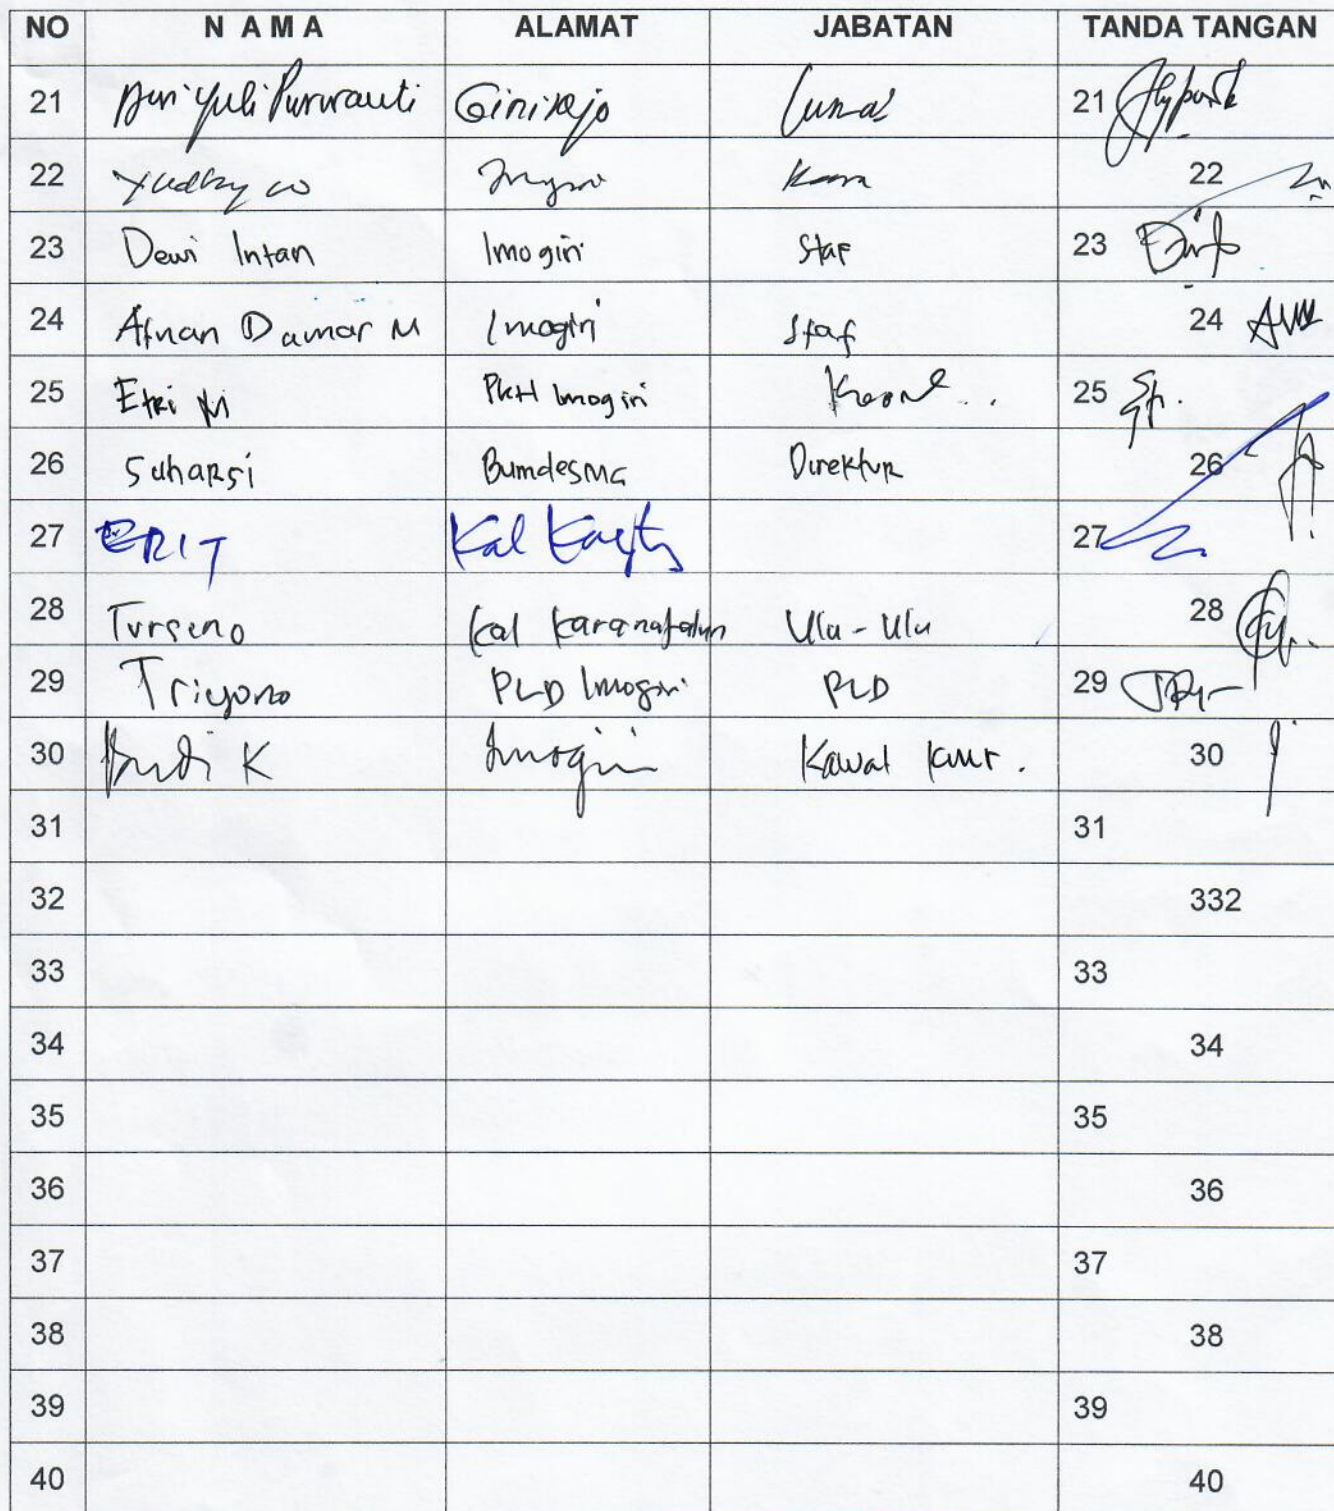 NO N A M A ALAMAT JABATAN TANDA TANGAN
21 Yuli Purwanti Girirejo 21
22 22
23 Dewi Intan Imogiri Staf 23
24 Afnan Damar M Imogiri Staf 24
25 Etri M PKH Imogiri 25
26 Suharsi Bumdesma Direktur 26
27 ERIT Kal 27
28 Turseno Kal Karangtalun Ulu - Ulu 28
29 Triyono PLD Imogiri PLD 29
30 Budi K Imogiri Kawat 30
31 31
32 332
33 33
34 34
35 35
36 36
37 37
38 38
39 39
40 40